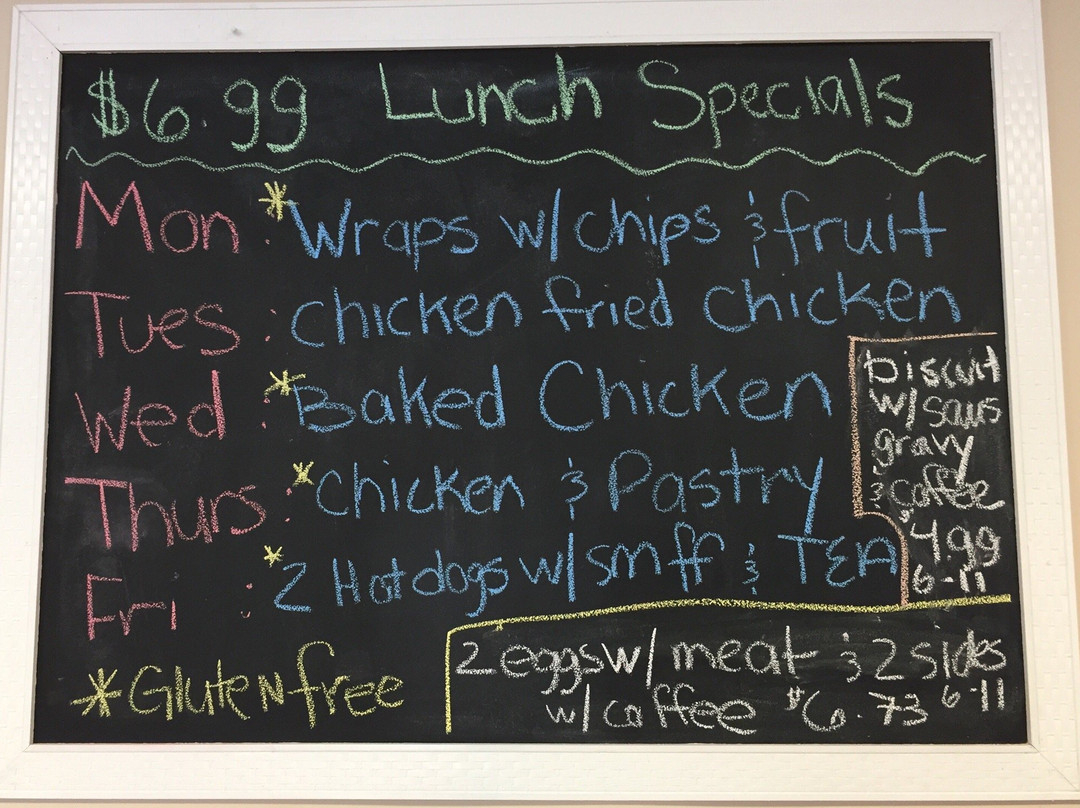 $6.99 Lunch Specials
Mon : *Wraps w/chips & fruit
Tues : Chicken fried Chicken
Wed : *Baked Chicken
Thurs : *Chicken & Pastry
Fri : *2 Hotdogs w/ sm ff & TEA
biscuit
w/ saus
gravy
& coffee
$4.99
6-11
*Gluten free
2 eggs w/ meat & 2 sides
w/ coffee $6.73 6-11